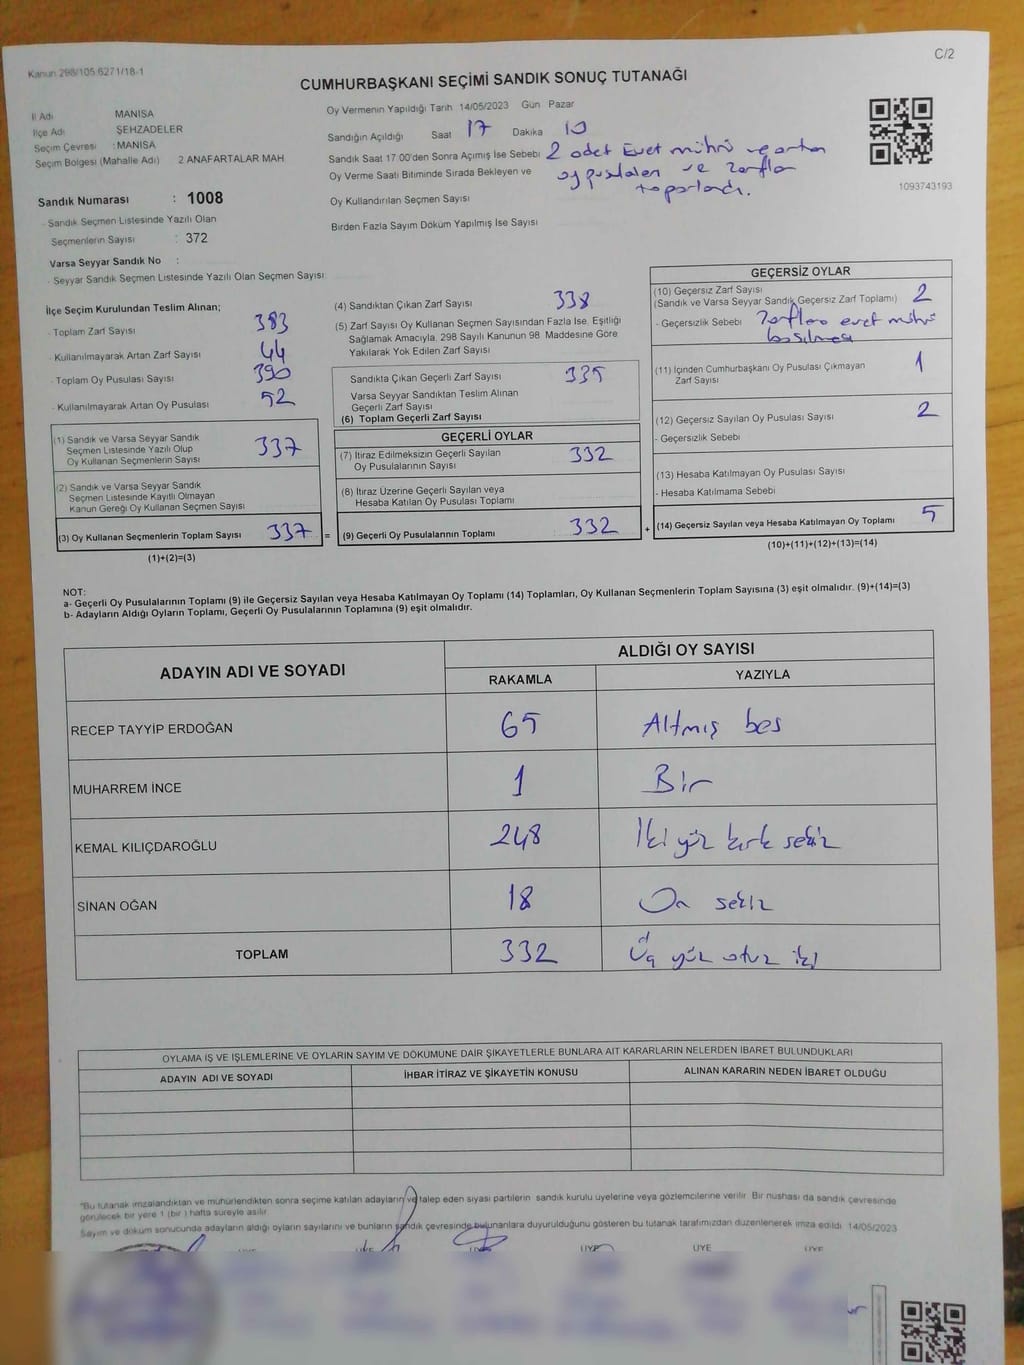 Kanun 298/105 6271/18-1
C/2
CUMHURBAŞKANI SEÇİMİ SANDIK SONUÇ TUTANAĞI
İl Adı MANİSA
İlçe Adı ŞEHZADELER
Seçim Çevresi : MANİSA
Seçim Bölgesi (Mahalle Adı) 2 ANAFARTALAR MAH
Oy Vermenin Yapıldığı Tarih 14/05/2023 Gün Pazar
Sandığın Açıldığı Saat 17 Dakika 10
Sandık Saat 17:00'den Sonra Açımış İse Sebebi 2 adet Evet mührü ve artan
Oy Verme Saati Bitiminde Sırada Bekleyen ve oy pusulaları ve zarflar
toparlandı.
Oy Kullandırılan Seçmen Sayısı
Birden Fazla Sayım Döküm Yapılmış İse Sayısı
1093743193
Sandık Numarası : 1008
- Sandık Seçmen Listesinde Yazılı Olan
Seçmenlerin Sayısı : 372
Varsa Seyyar Sandık No :
- Seyyar Sandık Seçmen Listesinde Yazılı Olan Seçmen Sayısı
İlçe Seçim Kurulundan Teslim Alınan;
- Toplam Zarf Sayısı 383
- Kullanılmayarak Artan Zarf Sayısı 44
- Toplam Oy Pusulası Sayısı 390
- Kullanılmayarak Artan Oy Pusulası 52
(1) Sandık ve Varsa Seyyar Sandık
Seçmen Listesinde Yazılı Olup
Oy Kullanan Seçmenlerin Sayısı 337
(2) Sandık ve Varsa Seyyar Sandık
Seçmen Listesinde Kayıtlı Olmayan
Kanun Gereği Oy Kullanan Seçmen Sayısı
(3) Oy Kullanan Seçmenlerin Toplam Sayısı 337 =
(1)+(2)=(3)
(4) Sandıktan Çıkan Zarf Sayısı 338
(5) Zarf Sayısı Oy Kullanan Seçmen Sayısından Fazla İse, Eşitliği
Sağlamak Amacıyla, 298 Sayılı Kanunun 98. Maddesine Göre
Yakılarak Yok Edilen Zarf Sayısı
Sandıkta Çıkan Geçerli Zarf Sayısı 335
Varsa Seyyar Sandıktan Teslim Alınan
Geçerli Zarf Sayısı
(6) Toplam Geçerli Zarf Sayısı
GEÇERLİ OYLAR
(7) İtiraz Edilmeksizin Geçerli Sayılan
Oy Pusulalarının Sayısı 332
(8) İtiraz Üzerine Geçerli Sayılan veya
Hesaba Katılan Oy Pusulası Toplamı
(9) Geçerli Oy Pusulalarının Toplamı 332 +
GEÇERSİZ OYLAR
(10) Geçersiz Zarf Sayısı
(Sandık ve Varsa Seyyar Sandık Geçersiz Zarf Toplamı) 2
- Geçersizlik Sebebi Zarflara evet mührü
basılması
(11) İçinden Cumhurbaşkanı Oy Pusulası Çıkmayan
Zarf Sayısı 1
(12) Geçersiz Sayılan Oy Pusulası Sayısı 2
- Geçersizlik Sebebi
(13) Hesaba Katılmayan Oy Pusulası Sayısı
- Hesaba Katılmama Sebebi
(14) Geçersiz Sayılan veya Hesaba Katılmayan Oy Toplamı 5
(10)+(11)+(12)+(13)=(14)
NOT:
a- Geçerli Oy Pusulalarının Toplamı (9) ile Geçersiz Sayılan veya Hesaba Katılmayan Oy Toplamı (14) Toplamları, Oy Kullanan Seçmenlerin Toplam Sayısına (3) eşit olmalıdır. (9)+(14)=(3)
b- Adayların Aldığı Oyların Toplamı, Geçerli Oy Pusulalarının Toplamına (9) eşit olmalıdır.
ADAYIN ADI VE SOYADI
ALDIĞI OY SAYISI
RAKAMLA YAZIYLA
RECEP TAYYİP ERDOĞAN 65 Altmış beş
MUHARREM İNCE 1 Bir
KEMAL KILIÇDAROĞLU 248 İki yüz kırk sekiz
SİNAN OĞAN 18 On sekiz
TOPLAM 332 Üç yüz otuz iki
OYLAMA İŞ VE İŞLEMLERİNE VE OYLARIN SAYIM VE DÖKÜMÜNE DAİR ŞİKAYETLERLE BUNLARA AİT KARARLARIN NELERDEN İBARET BULUNDUKLARI
ADAYIN ADI VE SOYADI İHBAR İTİRAZ VE ŞİKAYETİN KONUSU ALINAN KARARIN NEDEN İBARET OLDUĞU
*Bu tutanak imzalandıktan ve mühürlendikten sonra seçime katılan adayların ve talep eden siyasi partilerin sandık kurulu üyelerine veya gözlemcilerine verilir. Bir nüshası da sandık çevresinde
görülecek bir yere 1 (bir) hafta süreyle asılır.
Sayım ve döküm sonucunda adayların aldığı oyların sayılarını ve bunların sandık çevresinde bulunanlara duyurulduğunu gösteren bu tutanak tarafımızdan düzenlenerek imza edildi. 14/05/2023
ÜYE ÜYE ÜYE